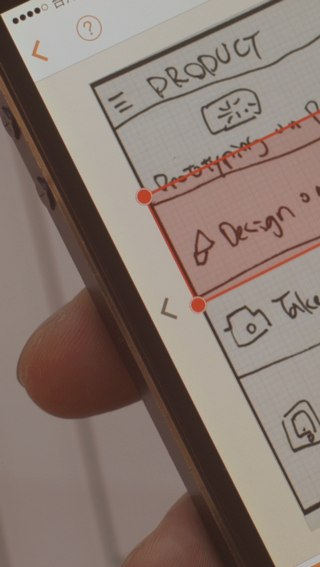 ?
PRODUCT
Prototyping on p
Design on
Take